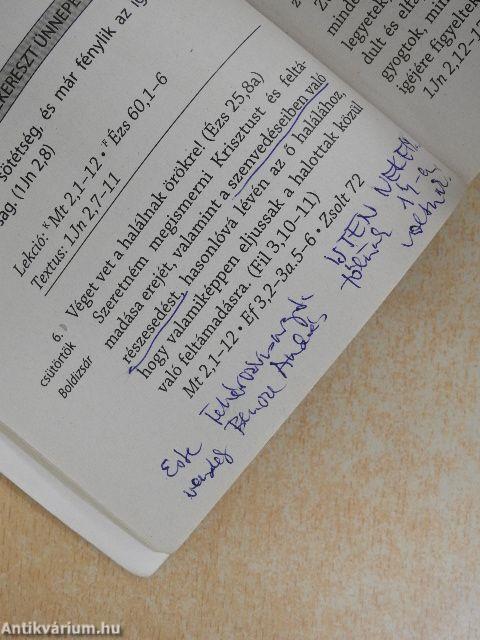 KERESZT ÜNNEPE
sötétség, és már fénylik az ig
ság. (1Jn 2,8)
Lekció: K Mt 2,1–12 • F Ézs 60,1–6
Textus: 1Jn 2,7–11
6. Véget vet a halálnak örökre! (Ézs 25,8a)
csütörtök
Boldizsár
Szeretném megismerni Krisztust és feltá-
madása erejét, valamint a szenvedéseiben való
részesedést, hasonlóvá lévén az ő halálához,
hogy valamiképpen eljussak a halottak közül
való feltámadásra. (Fil 3,10–11)
Mt 2,1–12 • Ef 3,2–3a.5–6 • Zsolt 72
Este
vendég Bence András
ISTEN
minde
legyetek,
dult és elfa
gyogtok, min
igéjére figyeltek
1Jn 2,12–1
Antikvárium.hu